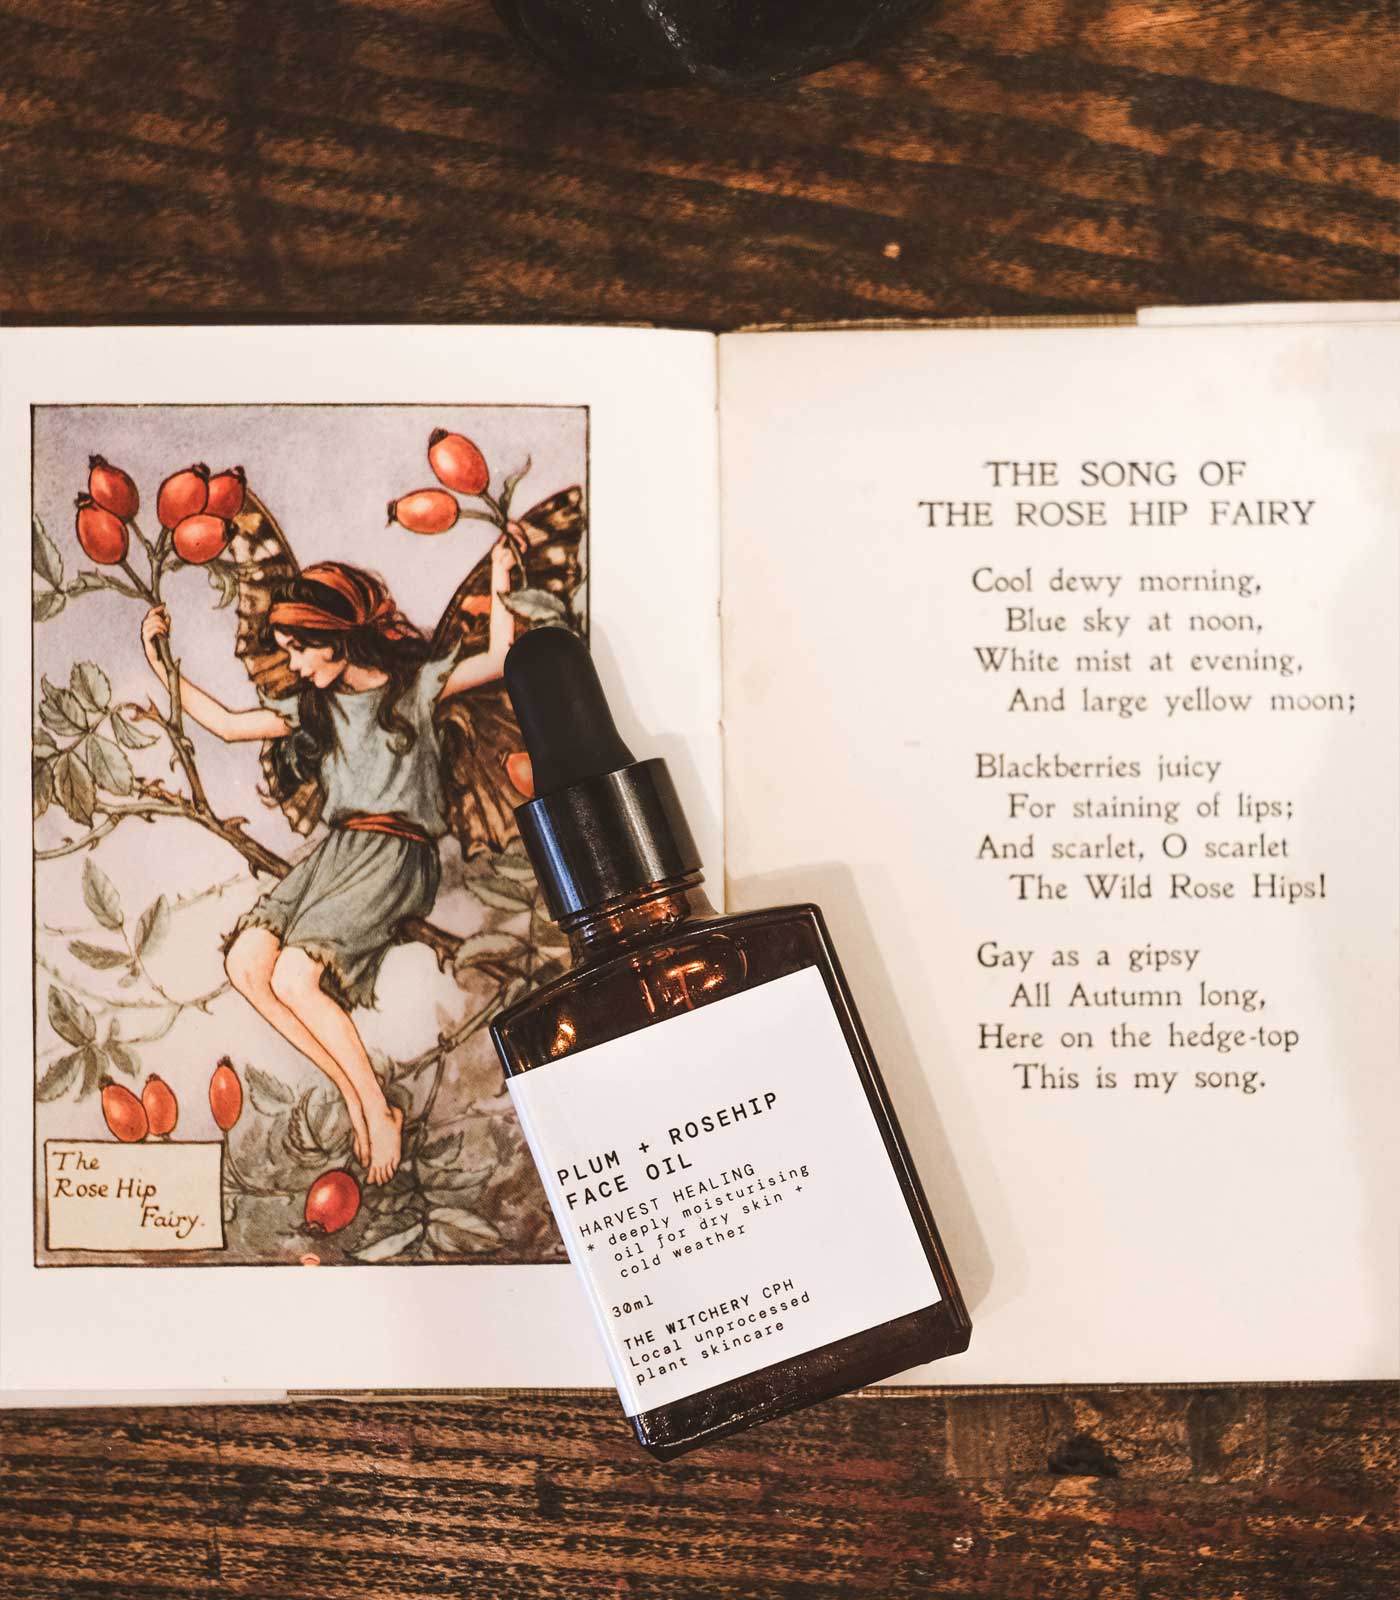 The
Rose Hip
Fairy.
THE SONG OF
THE ROSE HIP FAIRY
Cool dewy morning,
Blue sky at noon,
White mist at evening,
And large yellow moon;
Blackberries juicy
For staining of lips;
And scarlet, O scarlet
The Wild Rose Hips!
Gay as a gipsy
All Autumn long,
Here on the hedge-top
This is my song.
PLUM + ROSEHIP
FACE OIL
HARVEST HEALING
* deeply moisturising
oil for dry skin +
cold weather
30ml
THE WITCHERY CPH
Local unprocessed
plant skincare